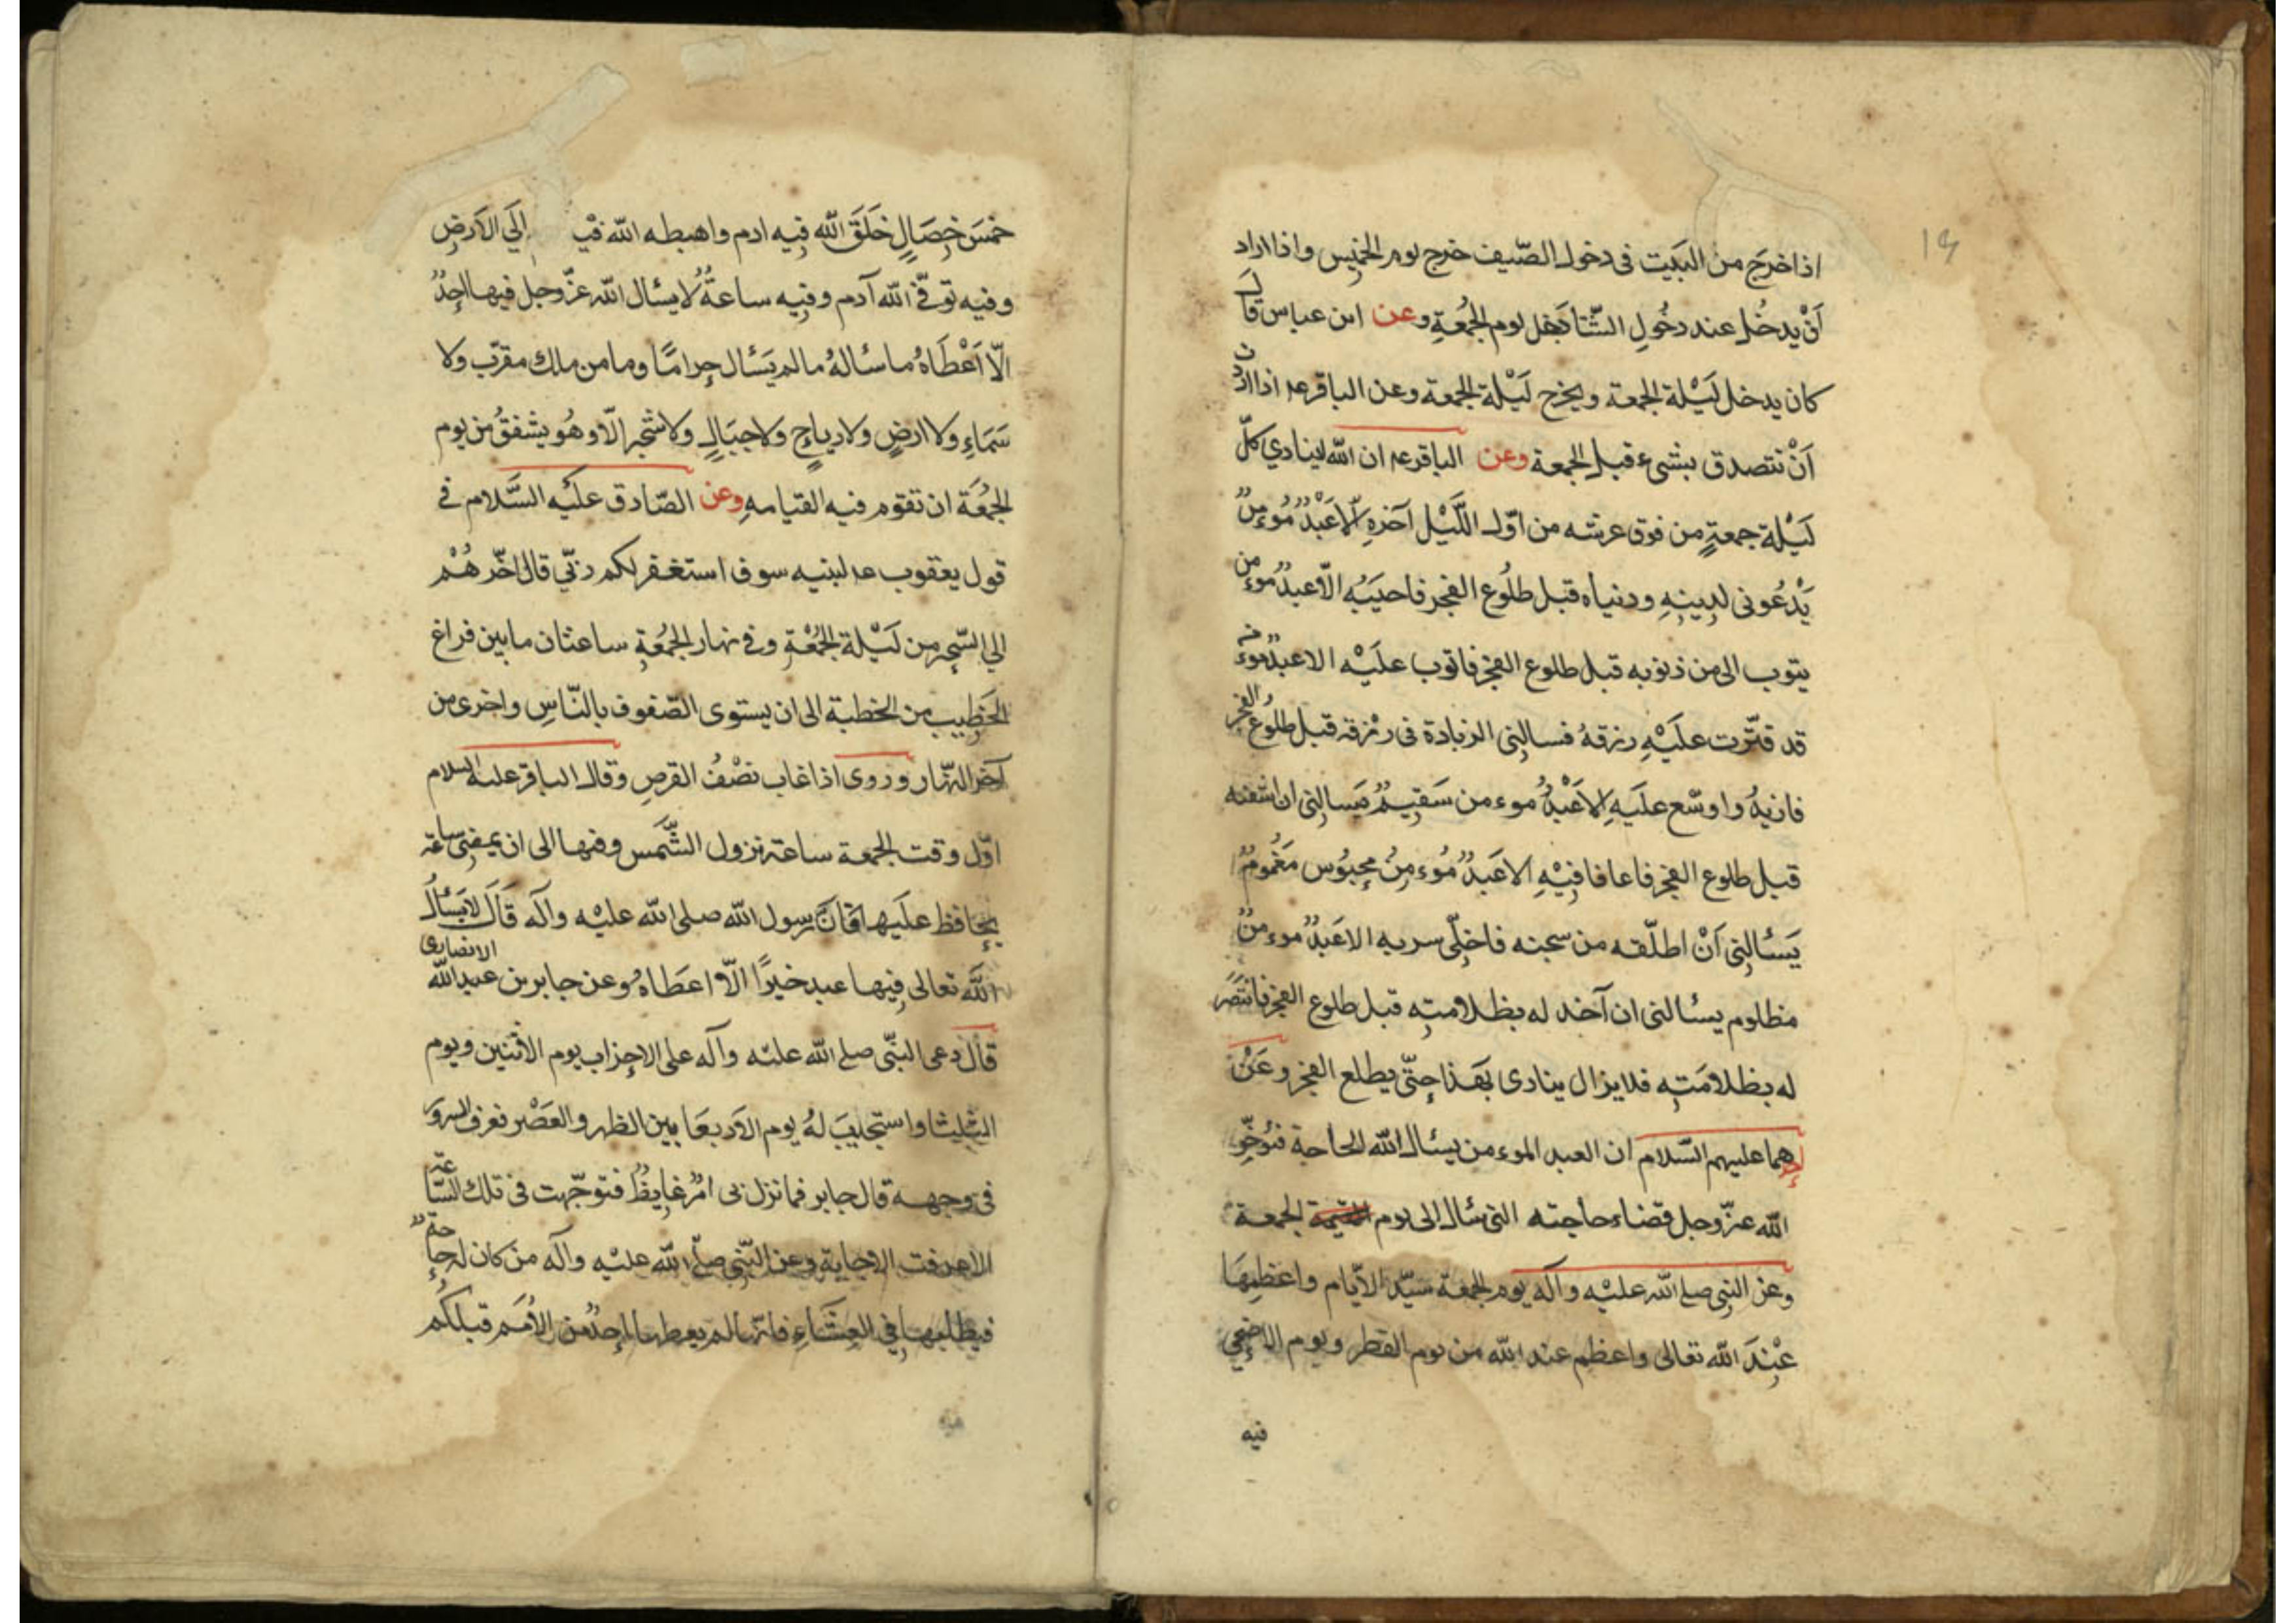 ١٩
اذا خرج من البَيت فى دخول الصّيف خرج يوم الخميس واذا اراد
اَنْ يدخُل عند دخُولِ الشّتا دَخل يوم الجُمُعةِ وعن ابن عباس قال
كان يدخل لَيْلة الجمعة ويخرج لَيْلة الجمعة وعن الباقر عه اذا اردت
اَنْ تتصدق بشىء قبل الجمعة وعن الباقر عه ان الله لينادي كلّ
لَيْلة جمعةٍ من فوق عرشه من اوّل اللَّيْل آخرهِ اَلاعَبْدٌ مُوءمنٌ
يَدْعُونى لدِينِهِ ودنياه قبل طلُوع الفجر فاجيبُه الاّ عبدٌ موءمن
يتوب الى من ذنوبه قبل طلوع الفجر فاتوب علَيْه الا عبدٌ موءمن
قد قتّرت علَيْهِ رزقهُ فسالنِى الزيادة فى رزقه قبل طلُوع الفجر
فازيدُ واوسّع علَيهِ الاعَبْدٌ موءمن سَقيمٌ يَسالنِى ان اشفيه
قبل طلوع الفجر فاعافافيْهِ الاعَبدٌ مُوءمِنٌ محبُوس مَغْمُومٌ
يَسئالنِى اَنْ اطلّقه من سجنه فاخلّى سربه الاعَبدٌ موءمنٌ
مظلوم يسئالنى ان آخذ له بظلامتِه قبل طلوع الفجر فانتَصَر
له بظلامَتِه فلا يزال ينادى بهَذا حتّى يطلع الفجر وعَنْ
احدهما عليهم السّلام ان العبد الموءمن يسئال الله الحاجة فيُؤخّر
الله عزّ وجل قضاء حاجته التى سال الى يوم القيمة الجمعة
وعن النبى صلے الله عليْه وآله يوم الجمعة سيّد الايّام واعظمِهَا
عْندَ الله تعالى واعظم عند الله من يوم الفطر ويوم الاضحى
فيه
خمسَ خِصَالٍ خَلَقَ الله فيه ادم واهبطه الله فيه إلَى الاَرضِ
وفيه توفّے الله آدم وفيه ساعةٌ لا يسئال الله عزّ وجل فيها احدٌ
الاّ اَعْطَاهُ ما سئالهُ ما لم يَسْئال حرامًا وما من ملك مقرّب ولا
سَمَاءِ ولا ارضٍ ولا رياحٍ ولا جبَالٍ ولا شجر الاّ وهُو يشفقُ من يوم
الجُمُعَة ان تقوم فيه القيامهِ وعن الصّادق علَيْه السَّلام فے
قول يعقوب عه لبنيه سوف استغفر لكم ربّي قال اخّرهُمْ
الي السّحر من لَيْلة الجُمُعْةِ وفے نهار الجُمُعةِ ساعتان ما بين فراغ
الخَطِيب من الخطبة الى ان يستوى الصّفوف بالنّاسِ واخرى من
آخر النهّار وروى اذا غاب نصْفُ القرصِ وقال الباقر عليه السلام
اوّل وقت الجمعة ساعة تزول الشَّمس وفيها الى ان يمضِىَ ساعة
يحَافظ علَيها فانّ رسول الله صلى الله عليْه وآله قَالَ لا يَسْئالُ
اللّهَ تعالى فِيها عبد خيرًا الاّ اعطَاهُ وعن جابر بن عبد الله الانصارى
قَالَ دعى النبّى صلے الله عليْه وآله على الاحزاب يوم الاثنين ويوم
الثلِيثا واستجيبَ لهُ يوم الاَربعَا بين الظهر والعَصْر فعرف السرور
فى وجهه قال جابر فما نزل بى امْرٌ غايظٌ فتوجّهت فى تلك السَّاعة
الاعرفت الاجابة وعن النّبى صلّے الله عليْه وآله من كان له حاجةٌ
فيطلبها فِي العِشَاءِ فانّها لم يعطها احدٌ من الاُمَم قبلكُم
هذه